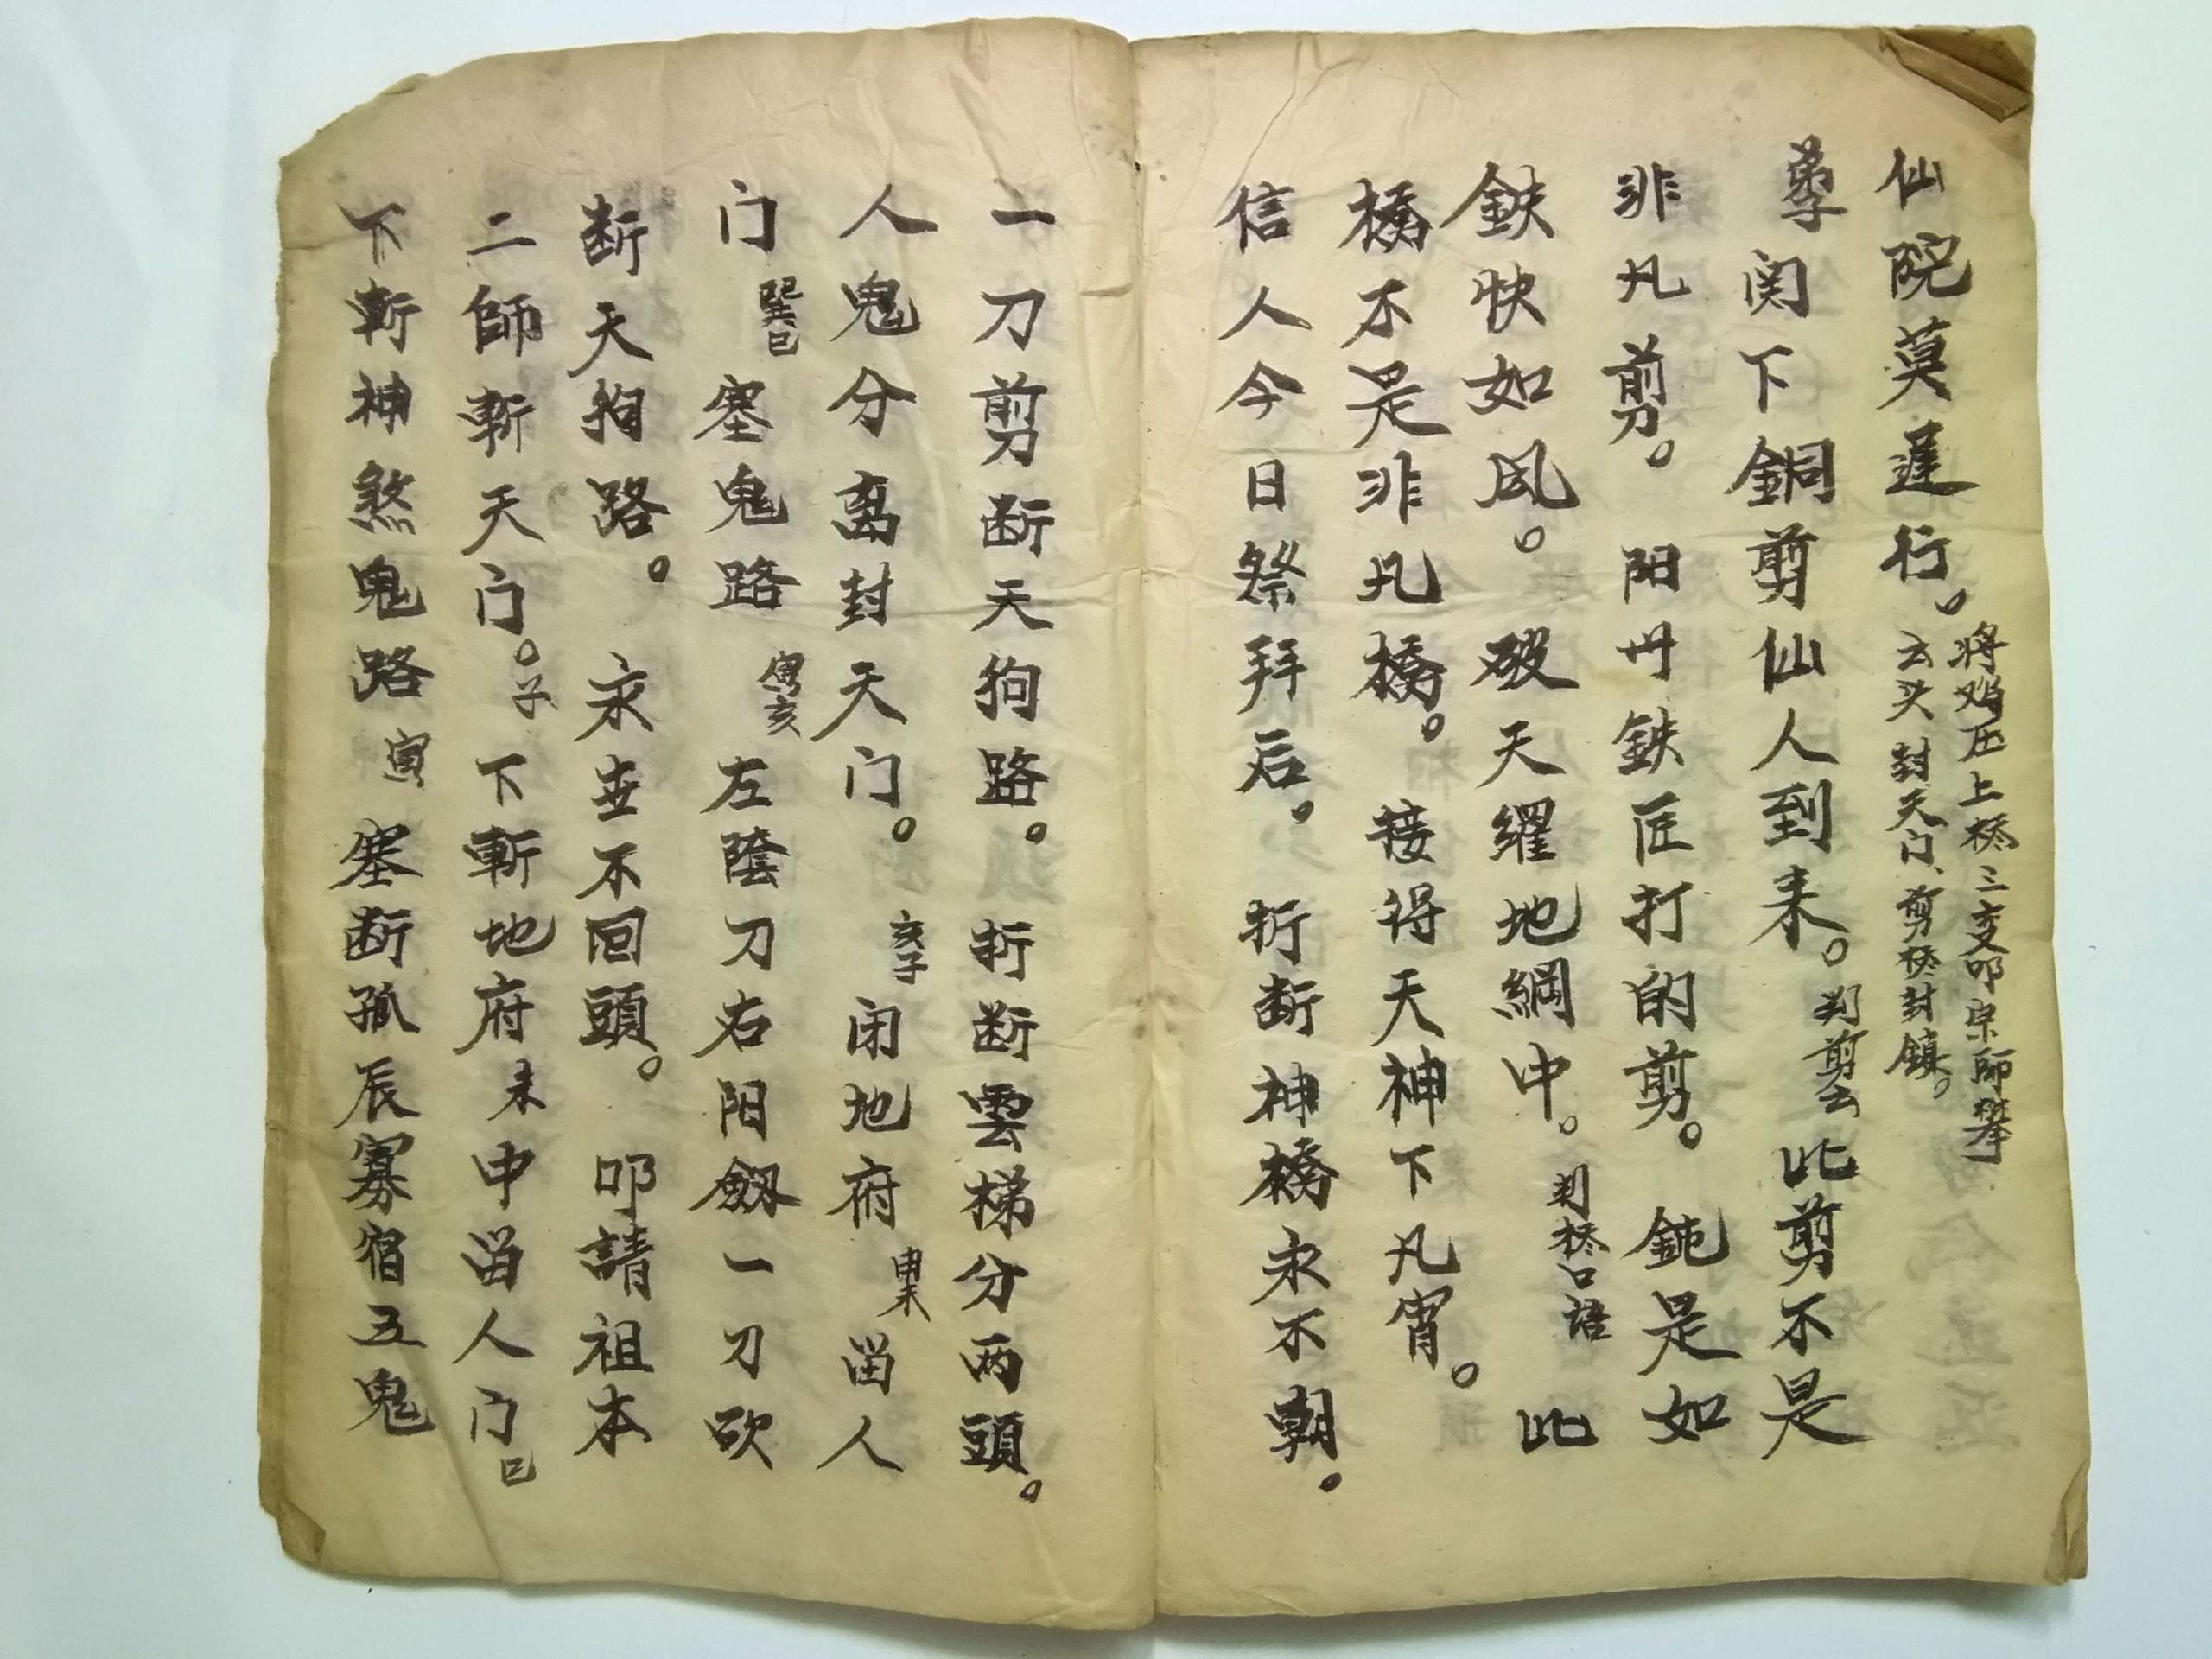 仙院莫遲行。将鸡压上桥三变叩宗師拳
云头封天门、剪桥封鎮。
关下銅剪仙人到来。判剪云 此剪不是
非凡剪。 阳州鉄匠打的剪。 鈍是如
鉄快如风。 破天纙地網中。判桥口语 此
橋不是非凡橋。 接得天神下凡霄。
信人今日祭拜后。 折断神橋永不朝。
一刀剪断天狗路。 折断雲梯分两頭。
人鬼分离封天门。亥子 闭地府申未 畄人
门巽巳 塞鬼路寅亥 左陰刀右阳劔一刀砍
断天狗路。 永世不回頭。 叩請祖本
二師斬天门。子 下斬地府未申畄人门巳
下斬神煞鬼路寅 塞断孤辰寡宿五鬼